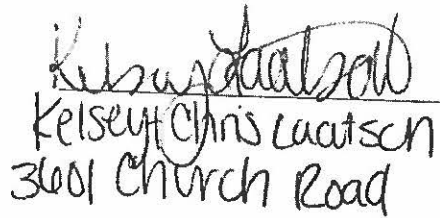 Kelsey Laatsch
Kelsey + Chris Laatsch
3601 Church Road